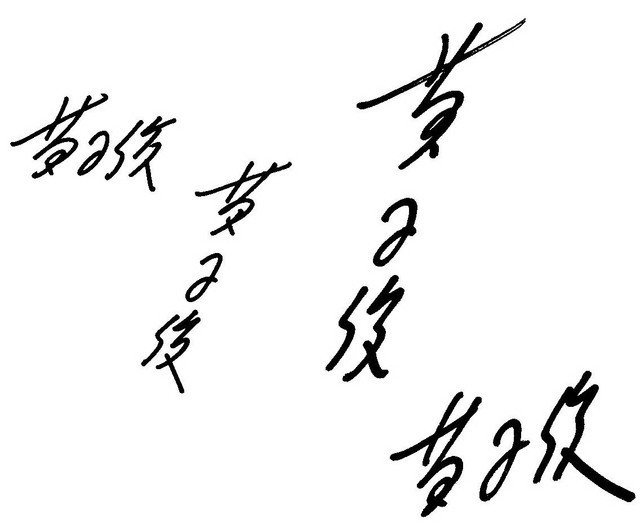 黄子俊
黄子俊
黄子俊
黄子俊